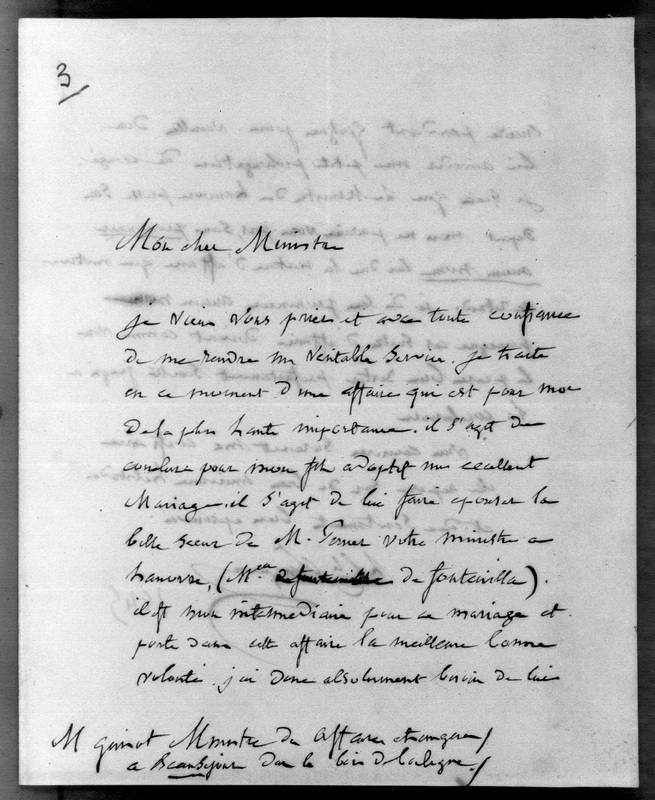 3
Mon cher Ministre
je viens vous prier et avec toute confiance
de me rendre un veritable service. je traite
en ce moment d'une affaire qui est pour moi
de la plus haute importance. il s'agit de
conclure pour mon fils adoptif un excellent
Mariage. il s'agit de lui faire epouser la
belle soeur de M. votre ministre a
hanovre, (Mlle de fontenilla).
il est mon intermediaire pour ce mariage et
porte dans cette affaire la meilleure bonne
volonté. j'ai donc absolument besoin de lui
M guizot Ministre des affaires etrangeres/
a Beausejour dans le bois de boulogne./